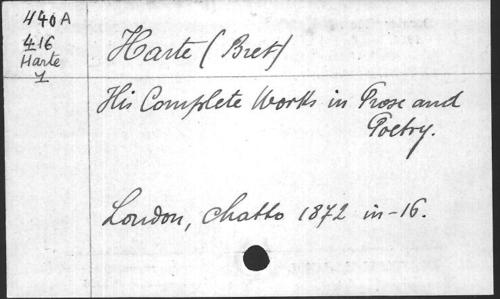 440A
416
Harte
1
Harte (Bret)
His Complete Works in Prose and
Poetry.
London, Chatto 1872 in-16.